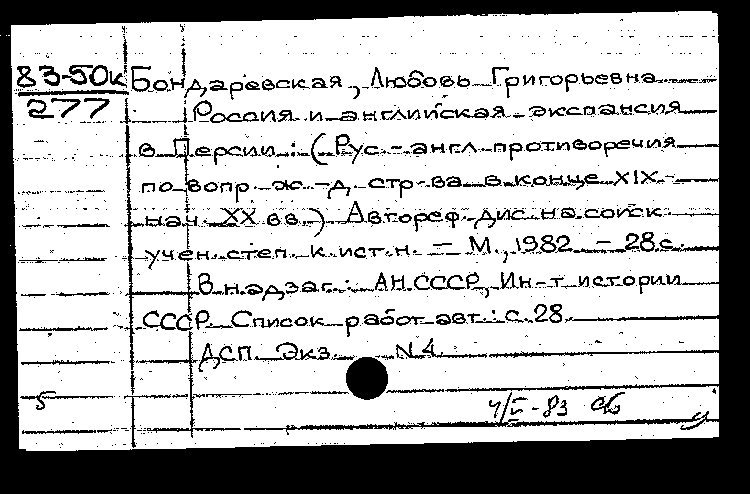 83-50к Бондаревская, Любовь Григорьевна
277 Россия и английская экспансия
в Персии: (Рус.-англ. противоречия
по вопр. ж.-д. стр-ва в конце XIX-
нач. XX вв.) Автореф. дис. на соиск.
учен. степ. к. ист. н. – М., 1982. – 28 с.
В надзаг.: АН СССР, Ин-т истории
СССР. Список работ авт.: с. 28.
ДСП. Экз. N 4.
5